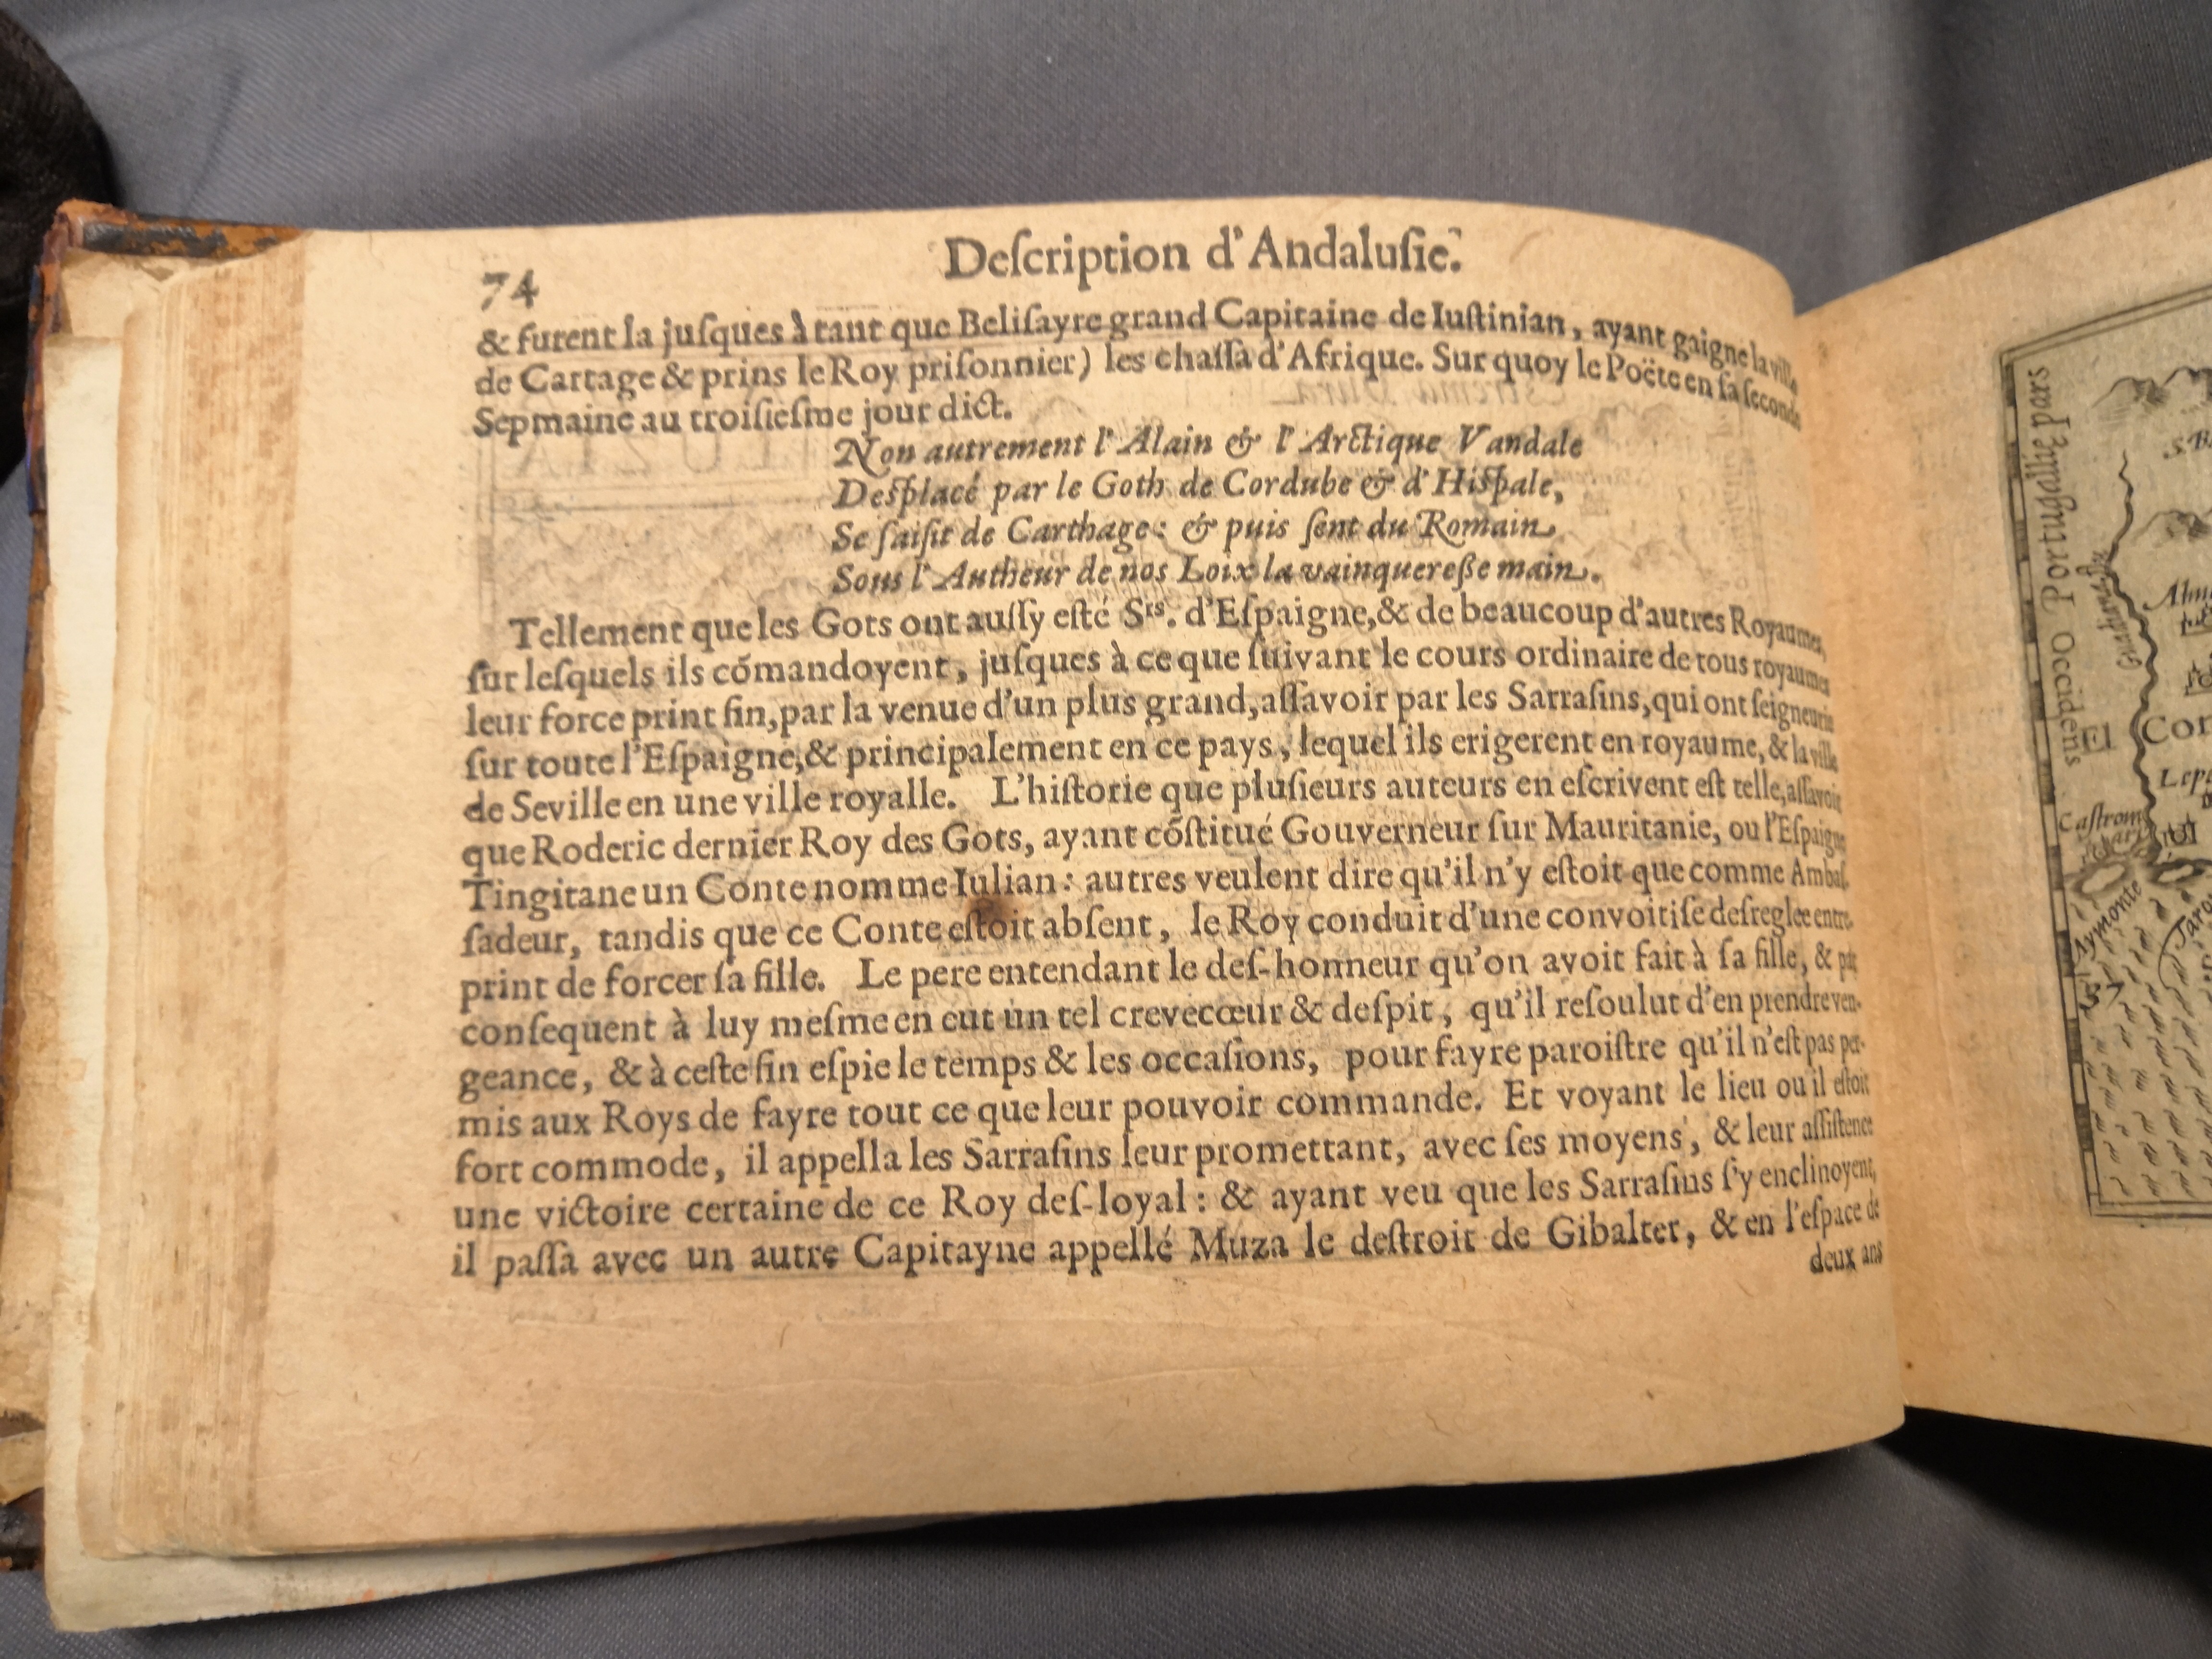 74
Deſcription d'Andaluſie.
& furent la juſques à tant que Beliſayre grand Capitaine de Iuſtinian, ayant gaigne la ville
de Cartage & prins le Roy priſonnier) les chaſſa d'Afrique. Sur quoy le Poëte en ſa ſeconde
Sepmaine au troiſieſme jour dict.
Non autrement l'Alain & l'Arctique Vandale
Deſplacé par le Goth de Cordube & d'Hiſpale,
Se ſaiſit de Carthage: & puis ſent du Romain
Sous l'Autheur de nos Loix la vainquereſſe main.
Tellement que les Gots ont auſſy eſté Srs. d'Eſpaigne, & de beaucoup d'autres Royaumes,
ſur leſquels ils cõmandoyent, juſques à ce que ſuivant le cours ordinaire de tous royaumes
leur force print fin, par la venue d'un plus grand, aſſavoir par les Sarraſins, qui ont ſeigneurie
ſur toute l'Eſpaigne, & principalement en ce pays, lequel ils erigerent en royaume, & la ville
de Seville en une ville royalle. L'hiſtorie que pluſieurs auteurs en eſcrivent eſt telle, aſſavoir
que Roderic dernier Roy des Gots, ayant cõſtitué Gouverneur ſur Mauritanie, ou l'Eſpaigne
Tingitane un Conte nomme Iulian: autres veulent dire qu'il n'y eſtoit que comme Ambaſ-
ſadeur, tandis que ce Conte eſtoit abſent, le Roy conduit d'une convoitiſe deſreglee entre-
print de forcer ſa fille. Le pere entendant le deſ-honneur qu'on avoit fait à ſa fille, & par
conſequent à luy meſme en eut un tel crevecœur & deſpit, qu'il reſoulut d'en prendre ven-
geance, & à ceſte fin eſpie le temps & les occaſions, pour fayre paroiſtre qu'il n'eſt pas per-
mis aux Roys de fayre tout ce que leur pouvoir commande. Et voyant le lieu ou il eſtoit
fort commode, il appella les Sarraſins leur promettant, avec ſes moyens, & leur aſſiſtence
une victoire certaine de ce Roy deſ-loyal: & ayant veu que les Sarraſins ſ'y enclinoyent,
il paſſa avec un autre Capitayne appellé Muza le deſtroit de Gibalter, & en l'eſpace de
deux ans
Portugalliæ pars
Occidens
Guadiana
Castrom
Aymonte
37